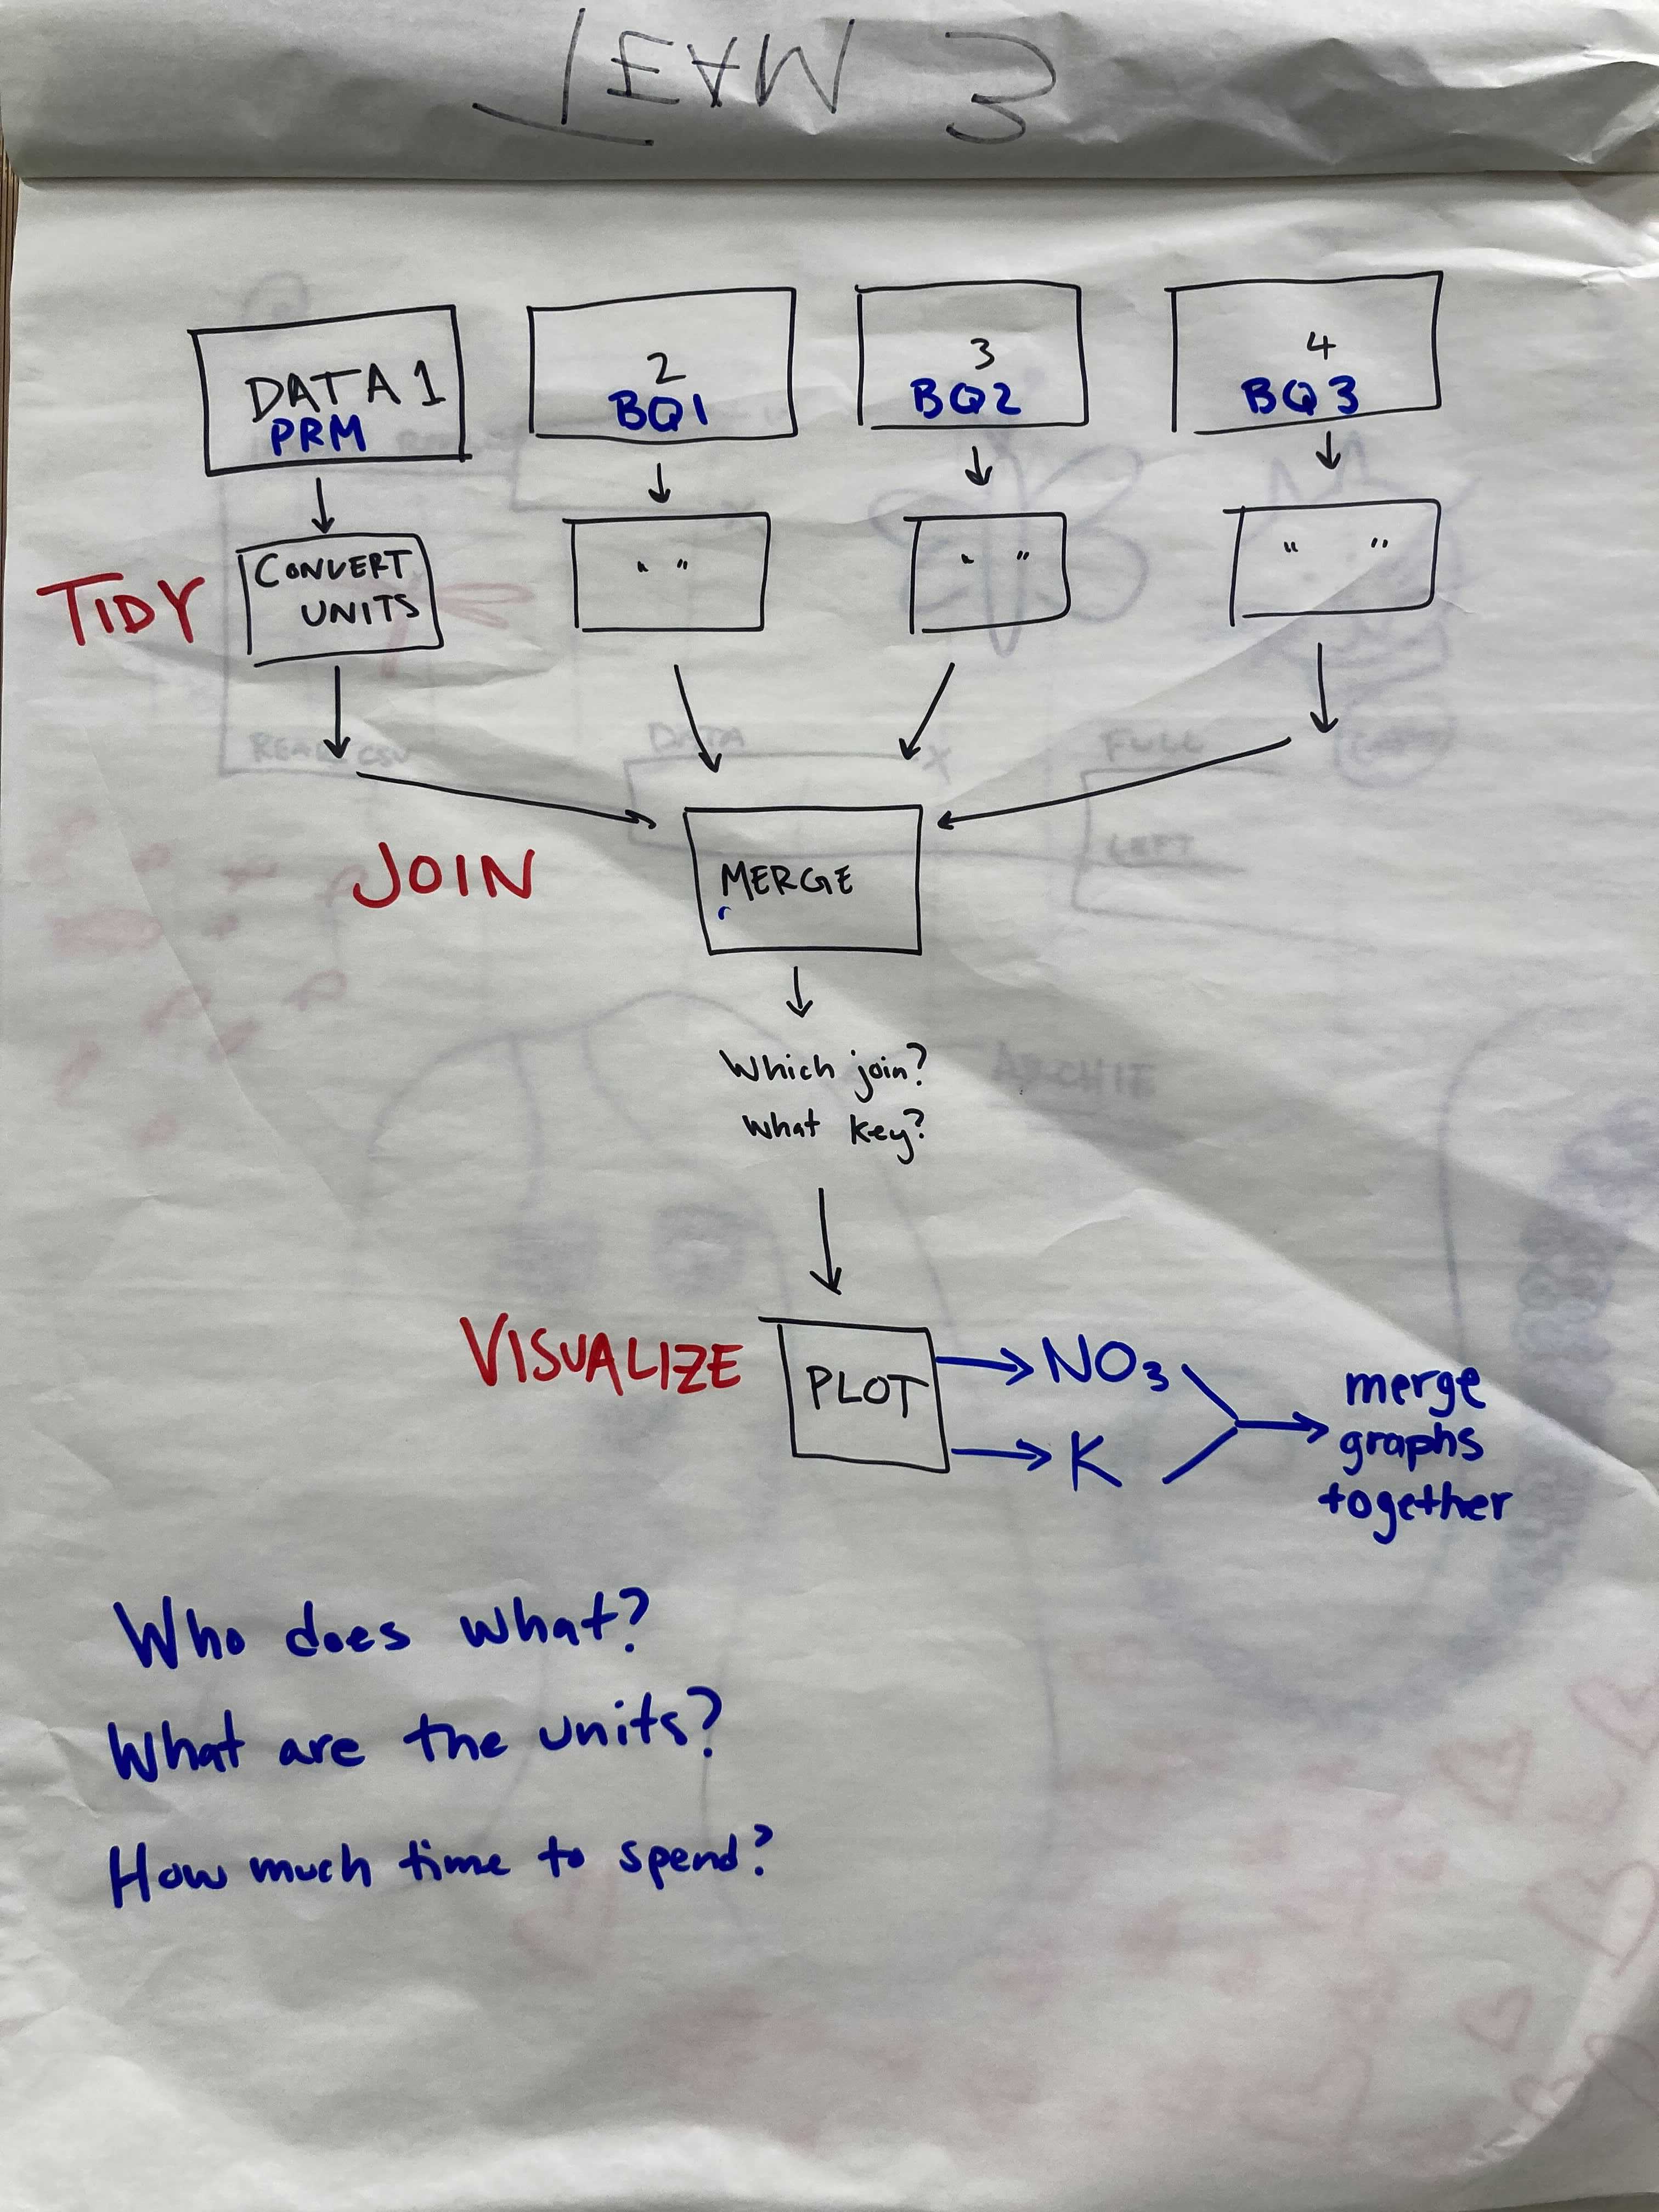 TEAM 3
DATA 1
PRM
2
BQ1
3
BQ2
4
BQ3
TIDY
CONVERT
UNITS
" "
" "
" "
READ CSV
DATA
FULL
LEFT
JOIN
MERGE
Which join?
What key?
ARCHIE
VISUALIZE
PLOT
NO3
K
merge
graphs
together
Who does what?
What are the units?
How much time to spend?